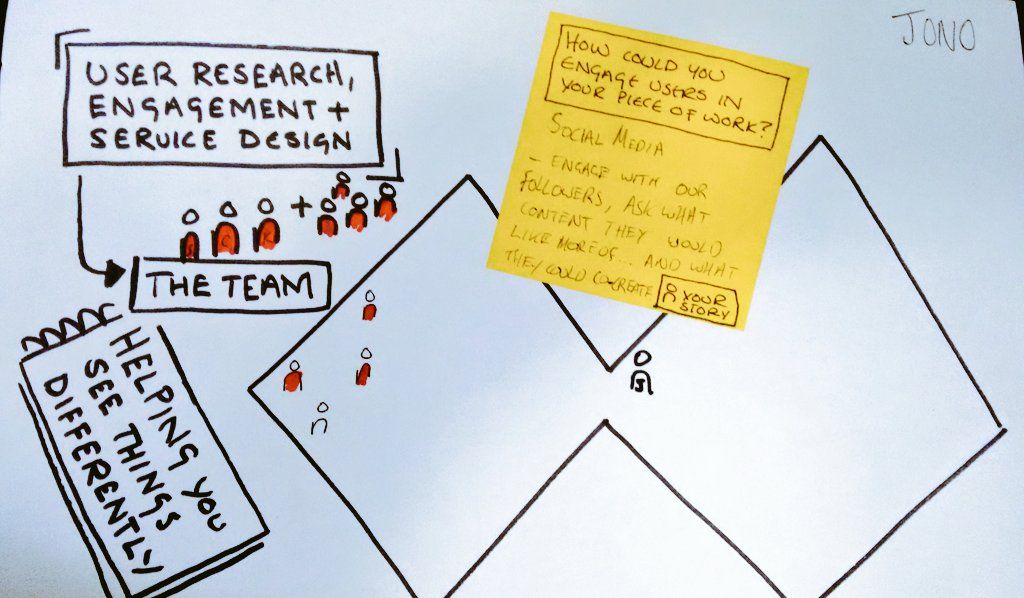 JONO
USER RESEARCH,
ENGAGEMENT +
SERVICE DESIGN
+
THE TEAM
HELPING YOU
SEE THINGS
DIFFERENTLY
HOW COULD YOU
ENGAGE USERS IN
YOUR PIECE OF WORK?
SOCIAL MEDIA
- ENGAGE WITH OUR
FOLLOWERS, ASK WHAT
CONTENT THEY WOULD
LIKE MORE OF... AND WHAT
THEY COULD CO-CREATE
YOUR
STORY